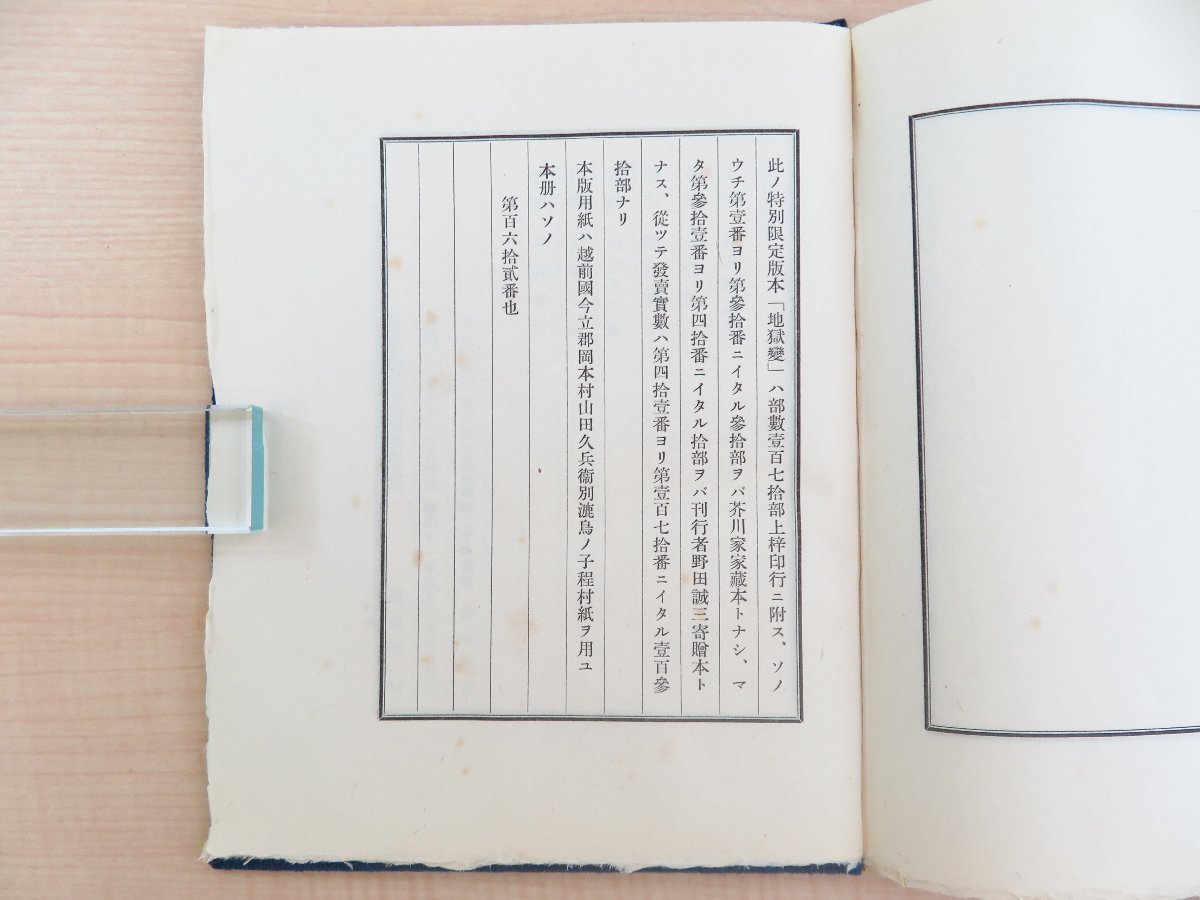 此ノ特別限定版本「地獄變」ハ部數壹百七拾部上梓印行ニ附ス、ソノ
ウチ第壹番ヨリ第參拾番ニイタル參拾部ヲバ芥川家家藏本トナシ、マ
タ第參拾壹番ヨリ第四拾番ニイタル拾部ヲバ刊行者野田誠三寄贈本ト
ナス、從ツテ發賣實數ハ第四拾壹番ヨリ第壹百七拾番ニイタル壹百參
拾部ナリ
本版用紙ハ越前國今立郡岡本村山田久兵衞別漉鳥ノ子程村紙ヲ用ユ
本册ハソノ
第百六拾貳番也